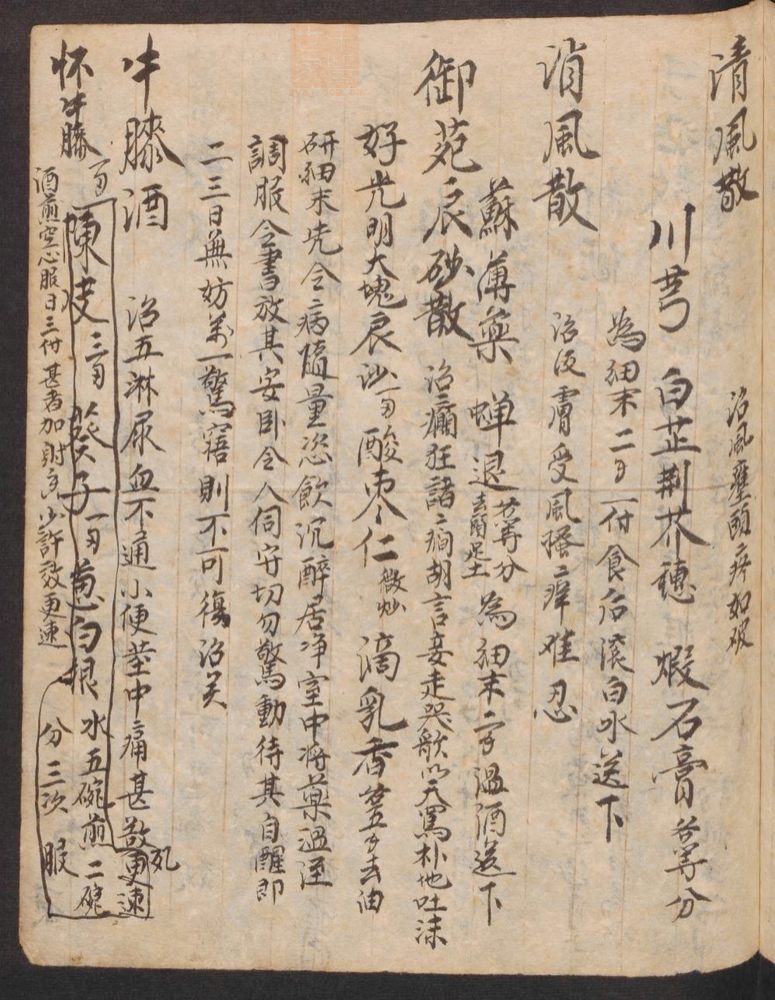 清風散
治風壅頭疼如破
川芎 白芷 荆芥穗 煆石膏各等分
為細末二 一付食后滚白水送下
消風散
治皮膚受風搔癢难忍
蘇薄藥 蝉退去前足土各等分為細末二 温酒送下
御苑辰砂散
治癲狂諸癇胡言妄走哭歌吟天罵朴地吐沫
好光明大塊辰砂 酸枣仁微炒 滴乳香 去油
研細末先令病隨量恣飲沉醉居净室中将藥温酒
調服令書放其安卧令人伺守切勿驚動待其自醒即
二三日無妨若一驚寤則不可復治矣
牛膝酒
治五淋尿血不通小便莖中痛甚 死
效更速
怀牛膝 陳 三 葵子一 葱白根 水五碗煎二碗
分三次服
酒煎空心服日三付甚者加射香少許效更速